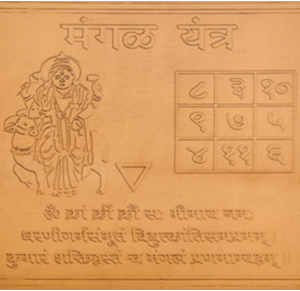 मंगळ यंत्र
८ ३ १०
९ ७ ५
४ ११ ६
ॐ क्रां क्रीं क्रौं सः भौमाय नमः
धरणीगर्भसंभूतं विद्युत्कांतिसमप्रभम् ।
कुमारं शक्तिहस्तं च मंगलं प्रणमाम्यहम् ।।